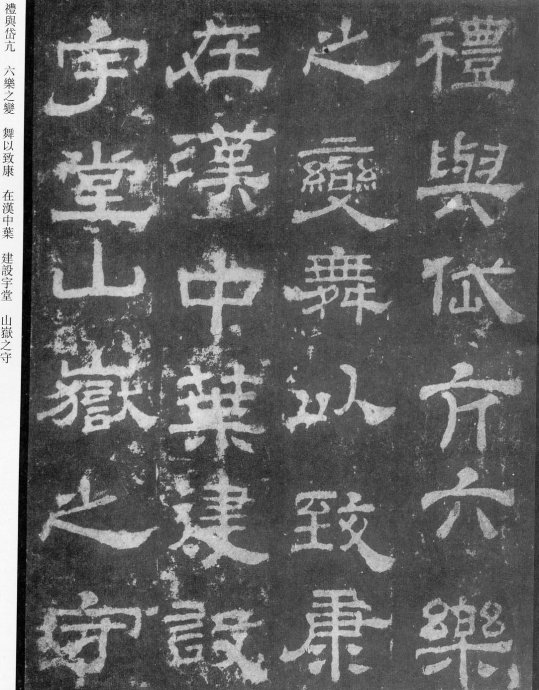 禮與岱亢六樂
之變舞以致康
在漢中葉建設
宇堂山嶽之守
禮與岱亢　六樂之變　舞以致康　在漢中葉　建設宇堂　山嶽之守